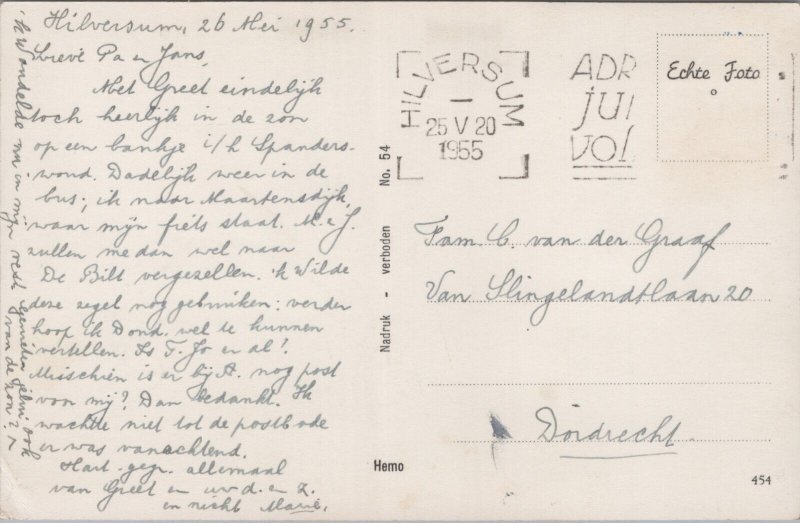 Hilversum, 26 Mei 1955.
Lieve Pa en Jans,
Met Greet eindelijk
toch heerlijk in de zon
op een bankje i/h Spanders-
woud. Dadelijk weer in de
bus; ik naar Maartensdijk,
waar mijn fiets staat. M. & J.
zullen me dan wel naar
De Bilt vergezellen. 'k Wilde
deze zegel nog gebruiken; verder
hoop ik Dond. wel te kunnen
vertellen. Is T. Jo er al?
Misschien is er bij A. nog post
voor mij? Dan bedankt. Ik
wachtte niet tot de postbode
er was vanochtend.
Hart. gr. allemaal
van Greet en uw d. en z.
en nicht Marie.
'k Wandelde nu in mijn rest
genieten jelui ook
van de zon?
HILVERSUM
25 V 20
1955
ADR
JUI
VOL
Echte Foto
Nadruk - verboden No. 54
Fam. C. van der Graaf
Van Slingelandtlaan 20
Dordrecht
Hemo
454